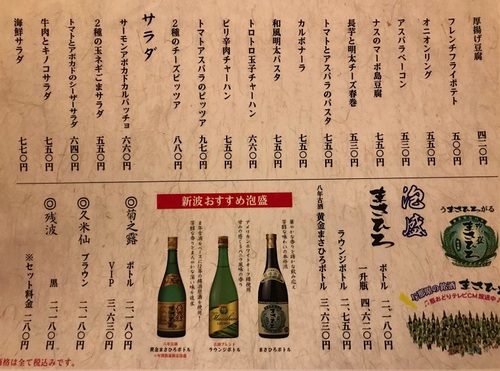 厚揚げ豆腐 四二〇円
フレンチフライポテト 五〇〇円
オニオンリング 四五〇円
アスパラベーコン 五三〇円
ナスのマーボ島豆腐 七五〇円
長芋と明太チーズ春巻 五三〇円
トマトとアスパラのパスタ 七五〇円
カルボナーラ 七五〇円
和風明太パスタ 七五〇円
トロトロ玉子チャーハン 六六〇円
ピリ辛肉チャーハン 七五〇円
トマトアスパラのピッツァ 九七〇円
2種のチーズピッツァ 八八〇円
サラダ
サーモンアボカドカルパッチョ 六六〇円
2種の玉ネギごまサラダ 五五〇円
トマトとアボカドのシーザーサラダ 六四〇円
牛肉とキノコサラダ 七五〇円
海鮮サラダ 七七〇円
うまさひろがる
まさひろ
泡盛
まさひろ
ボトル 二、二八〇円
一升瓶 四、六二〇円
ラウンジボトル 二、七五〇円
八年古酒 黄金まさひろボトル 三、六三〇円
新波おすすめ泡盛
まさひろボトル
ラウンジボトル
黄金まさひろボトル
◎菊之露 ボトル 二、二八〇円
VIP 三、六三〇円
◎久米仙 ブラウン 二、二八〇円
◎残波 黒 二、二八〇円
※セット料金 二八〇円
価格は全て税込みです。